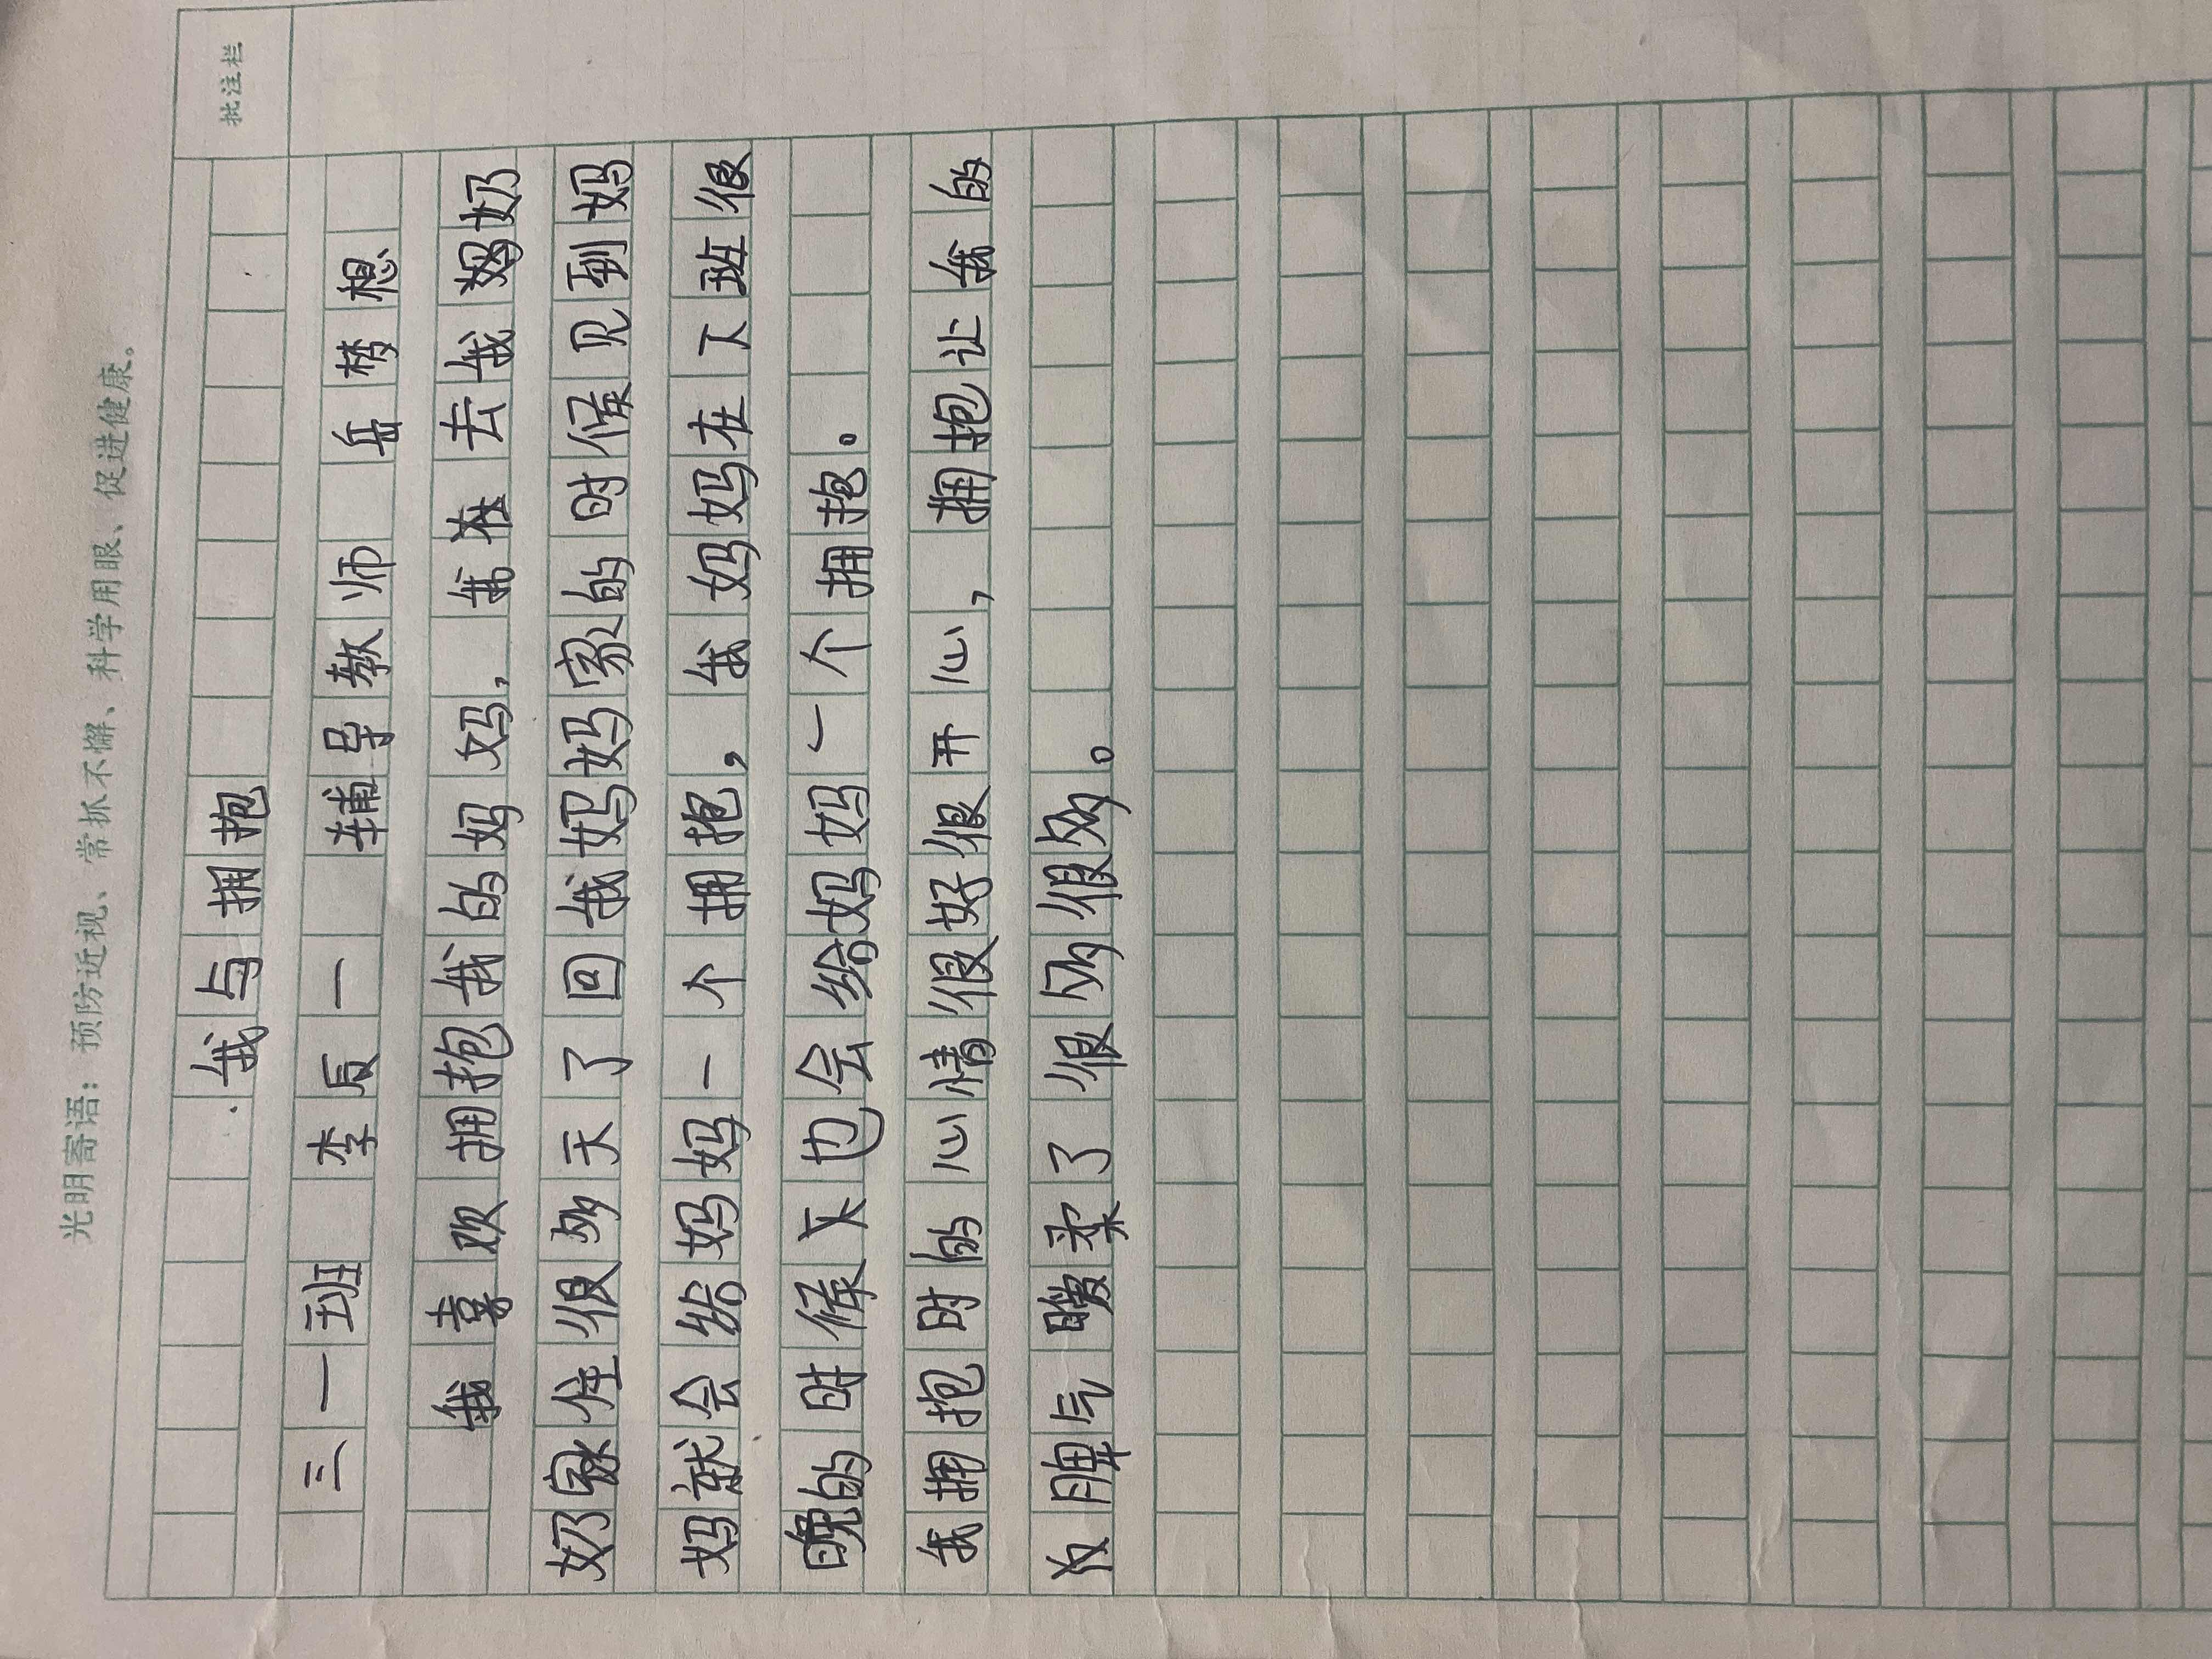 光明寄语：预防近视、常抓不懈、科学用眼、促进健康。
批注栏
我与拥抱
三一班 李后一 辅导教师 岳梦想
我喜欢拥抱我的妈妈，我在去我奶奶
奶家住很多天了回我妈妈家的时候见到妈
妈就会给妈妈一个拥抱，我妈妈在下班很
晚的时候又也会给妈妈一个拥抱。
我拥抱时的心情很好很开心，拥抱让我的
脾气暖柔了很多很多。